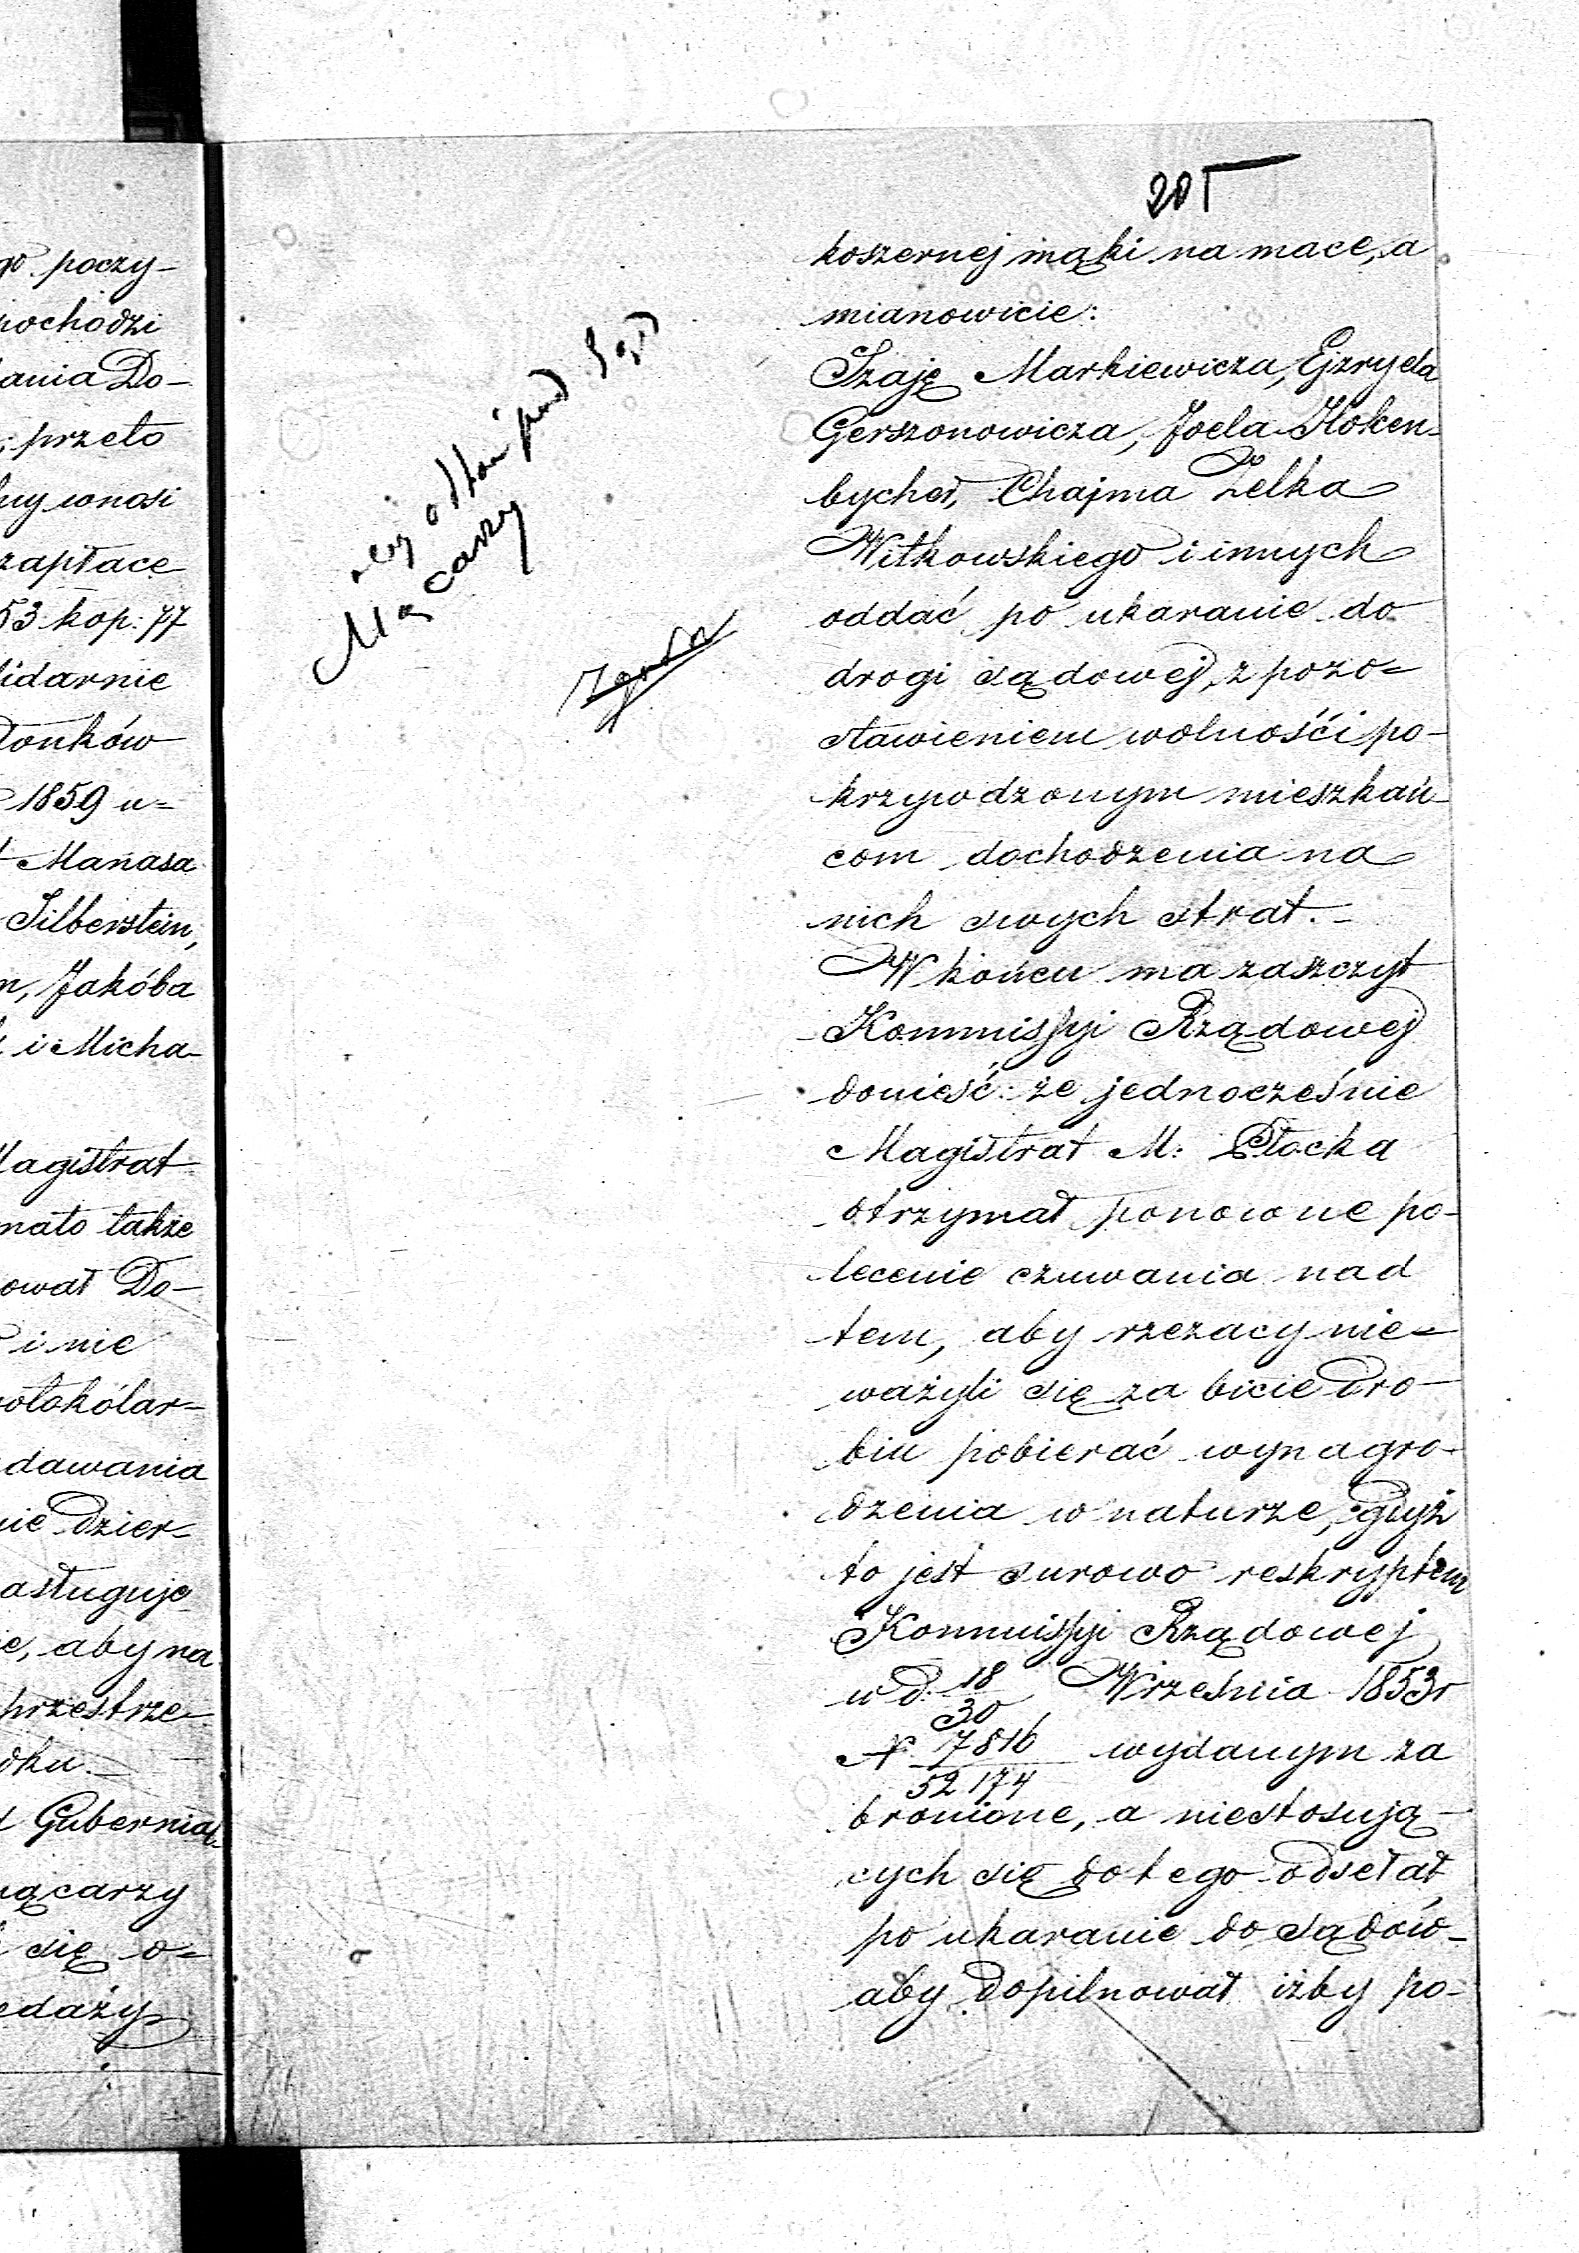 go poczy-
pochodzi
ania Do-
; przeto
wnosi
zapłace
53 kop: 77
lidarnie
łonków
1859 u=
Manasa
Silberstein,
m, Jakóba
i Micha-
Magistrat
mało także
ował Do-
i nie
otokólar=
dawania
nie dzier-
asługuje
ie, aby na
przestrze-
dku.-
d Gubernial-
mącarzy
się o=
edaży
205
koszernej mąki na mace, a
mianowicie:
Szaję Markiewicza, Ejzryela
Gerszonowicza, Joela Hoken-
bycher, Chajma Zelka
Witkowskiego i innych
oddać po ukaranie do
drogi sądowej, z pozo=
stawieniem wolnośći po-
krzywdzonym mieszkań-
com dochodzenia na
nich swych strat.-
W końcu ma zaszczyt
Kommissyi Rządowej
donieść: że jednocześnie
Magistrat M: Płocka
otrzymał ponowne po-
lecenie czuwania nad
tem, aby rzezacy nie=
ważyli się za bicie dro-
biu pobierać wynagro-
dzenia w naturze, gdyż
to jest surowo reskryptem
Kommissyi Rządowej
w d: 18/30 Września 1853r
N. 7816/52174 wydanym za
bronione, a niestosują-
cych się do tego odsełał
po ukaranie do sądów-
aby dopilnował iżby po-
Mącarzy
pod Sąd